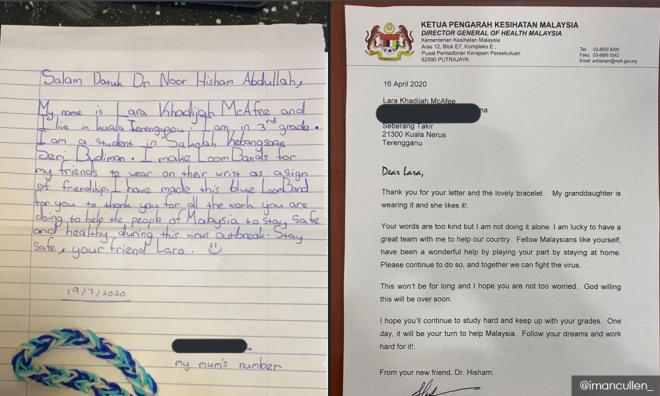 Salam Datuk Dr Noor Hisham Abdullah,
My name is Lara Khadijah McAfee and
I live in Kuala Terengganu. I am in 3rd grade.
I am a student in Sekolah Kebangsaan
Seri Budiman. I make LoomBands for
my friends to wear on their wrist as a sign
of friendship. I have made this blue LoomBand
for you to thank you for all the work you are
doing to help the people of Malaysia to stay safe
and healthy during this virus outbreak. Stay
safe, your friend Lara.
my mum's number
KETUA PENGARAH KESIHATAN MALAYSIA
DIRECTOR GENERAL OF HEALTH MALAYSIA
Kementerian Kesihatan Malaysia
Aras 12, Blok E7, Kompleks E,
Pusat Pentadbiran Kerajaan Persekutuan
62590 PUTRAJAYA
16 April 2020
Lara Khadijah McAfee
Seberang Takir
21300 Kuala Nerus
Terengganu
Dear Lara,
Thank you for your letter and the lovely bracelet. My granddaughter is
wearing it and she likes it!.
Your words are too kind but I am not doing it alone. I am lucky to have a
great team with me to help our country. Fellow Malaysians like yourself,
have been a wonderful help by playing your part by staying at home.
Please continue to do so, and together we can fight the virus.
This won't be for long and I hope you are not too worried. God willing
this will be over soon.
I hope you'll continue to study hard and keep up with your grades. One
day, it will be your turn to help Malaysia. Follow your dreams and work
hard for it!.
From your new friend, Dr. Hisham.
@imancullen_